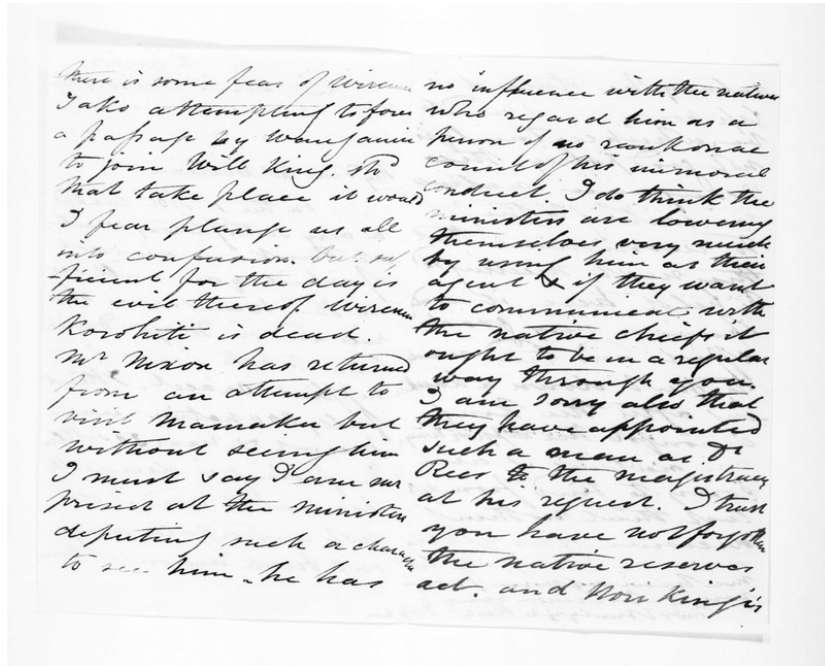 there is some fear of wiremu
Tako attempting to force
a passage by Wanganui
to join Will King. Shd
that take place it would
I fear plunge us all
into confusion. but suf
ficient for the day is
the evil thereof wiremu
Korohiti is dead.
Mr Nixon has returned
from an attempt to
visit Mamaku but
without seeing him
I must say I am sur
prised at the ministers
deputing such a character
to see him - he has
no influence with the natives
who regard him as a
person of no rank on ac
count of his immoral
conduct. I do think the
ministers are lowering
themselves very much
by using him as their
agent & if they want
to communicate with
the native chiefs it
ought to be in a regular
way through you.
I am sorry also that
they have appointed
such a man as Dr
Rees to the magistracy
at his request. I trust
you have not forgotten
the native reserves
act. and Hori King's